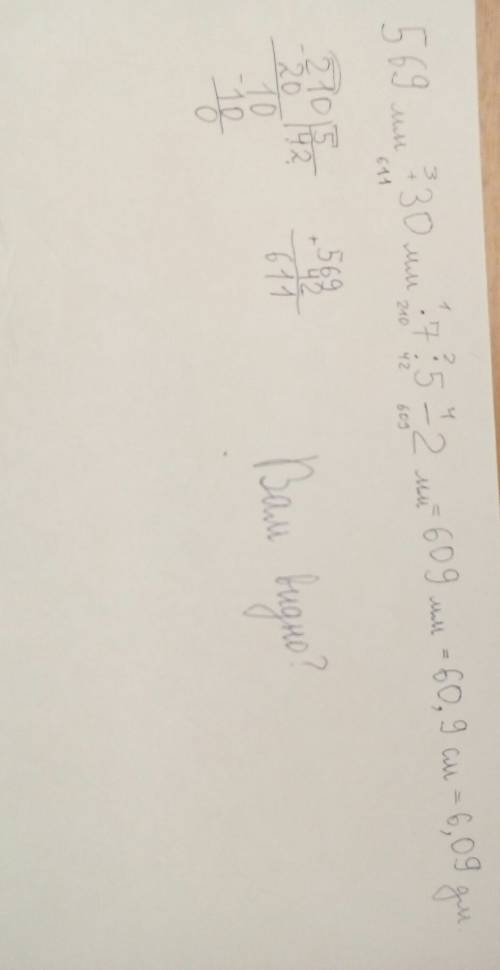 3 1 2 4
569 мм + 30 мм · 7 : 5 − 2 мм = 609 мм = 60,9 см = 6,09 дм
611 210 42 609
-210 | 5
20 | 42
10
-10
0
+569
42
611
Вам видно?